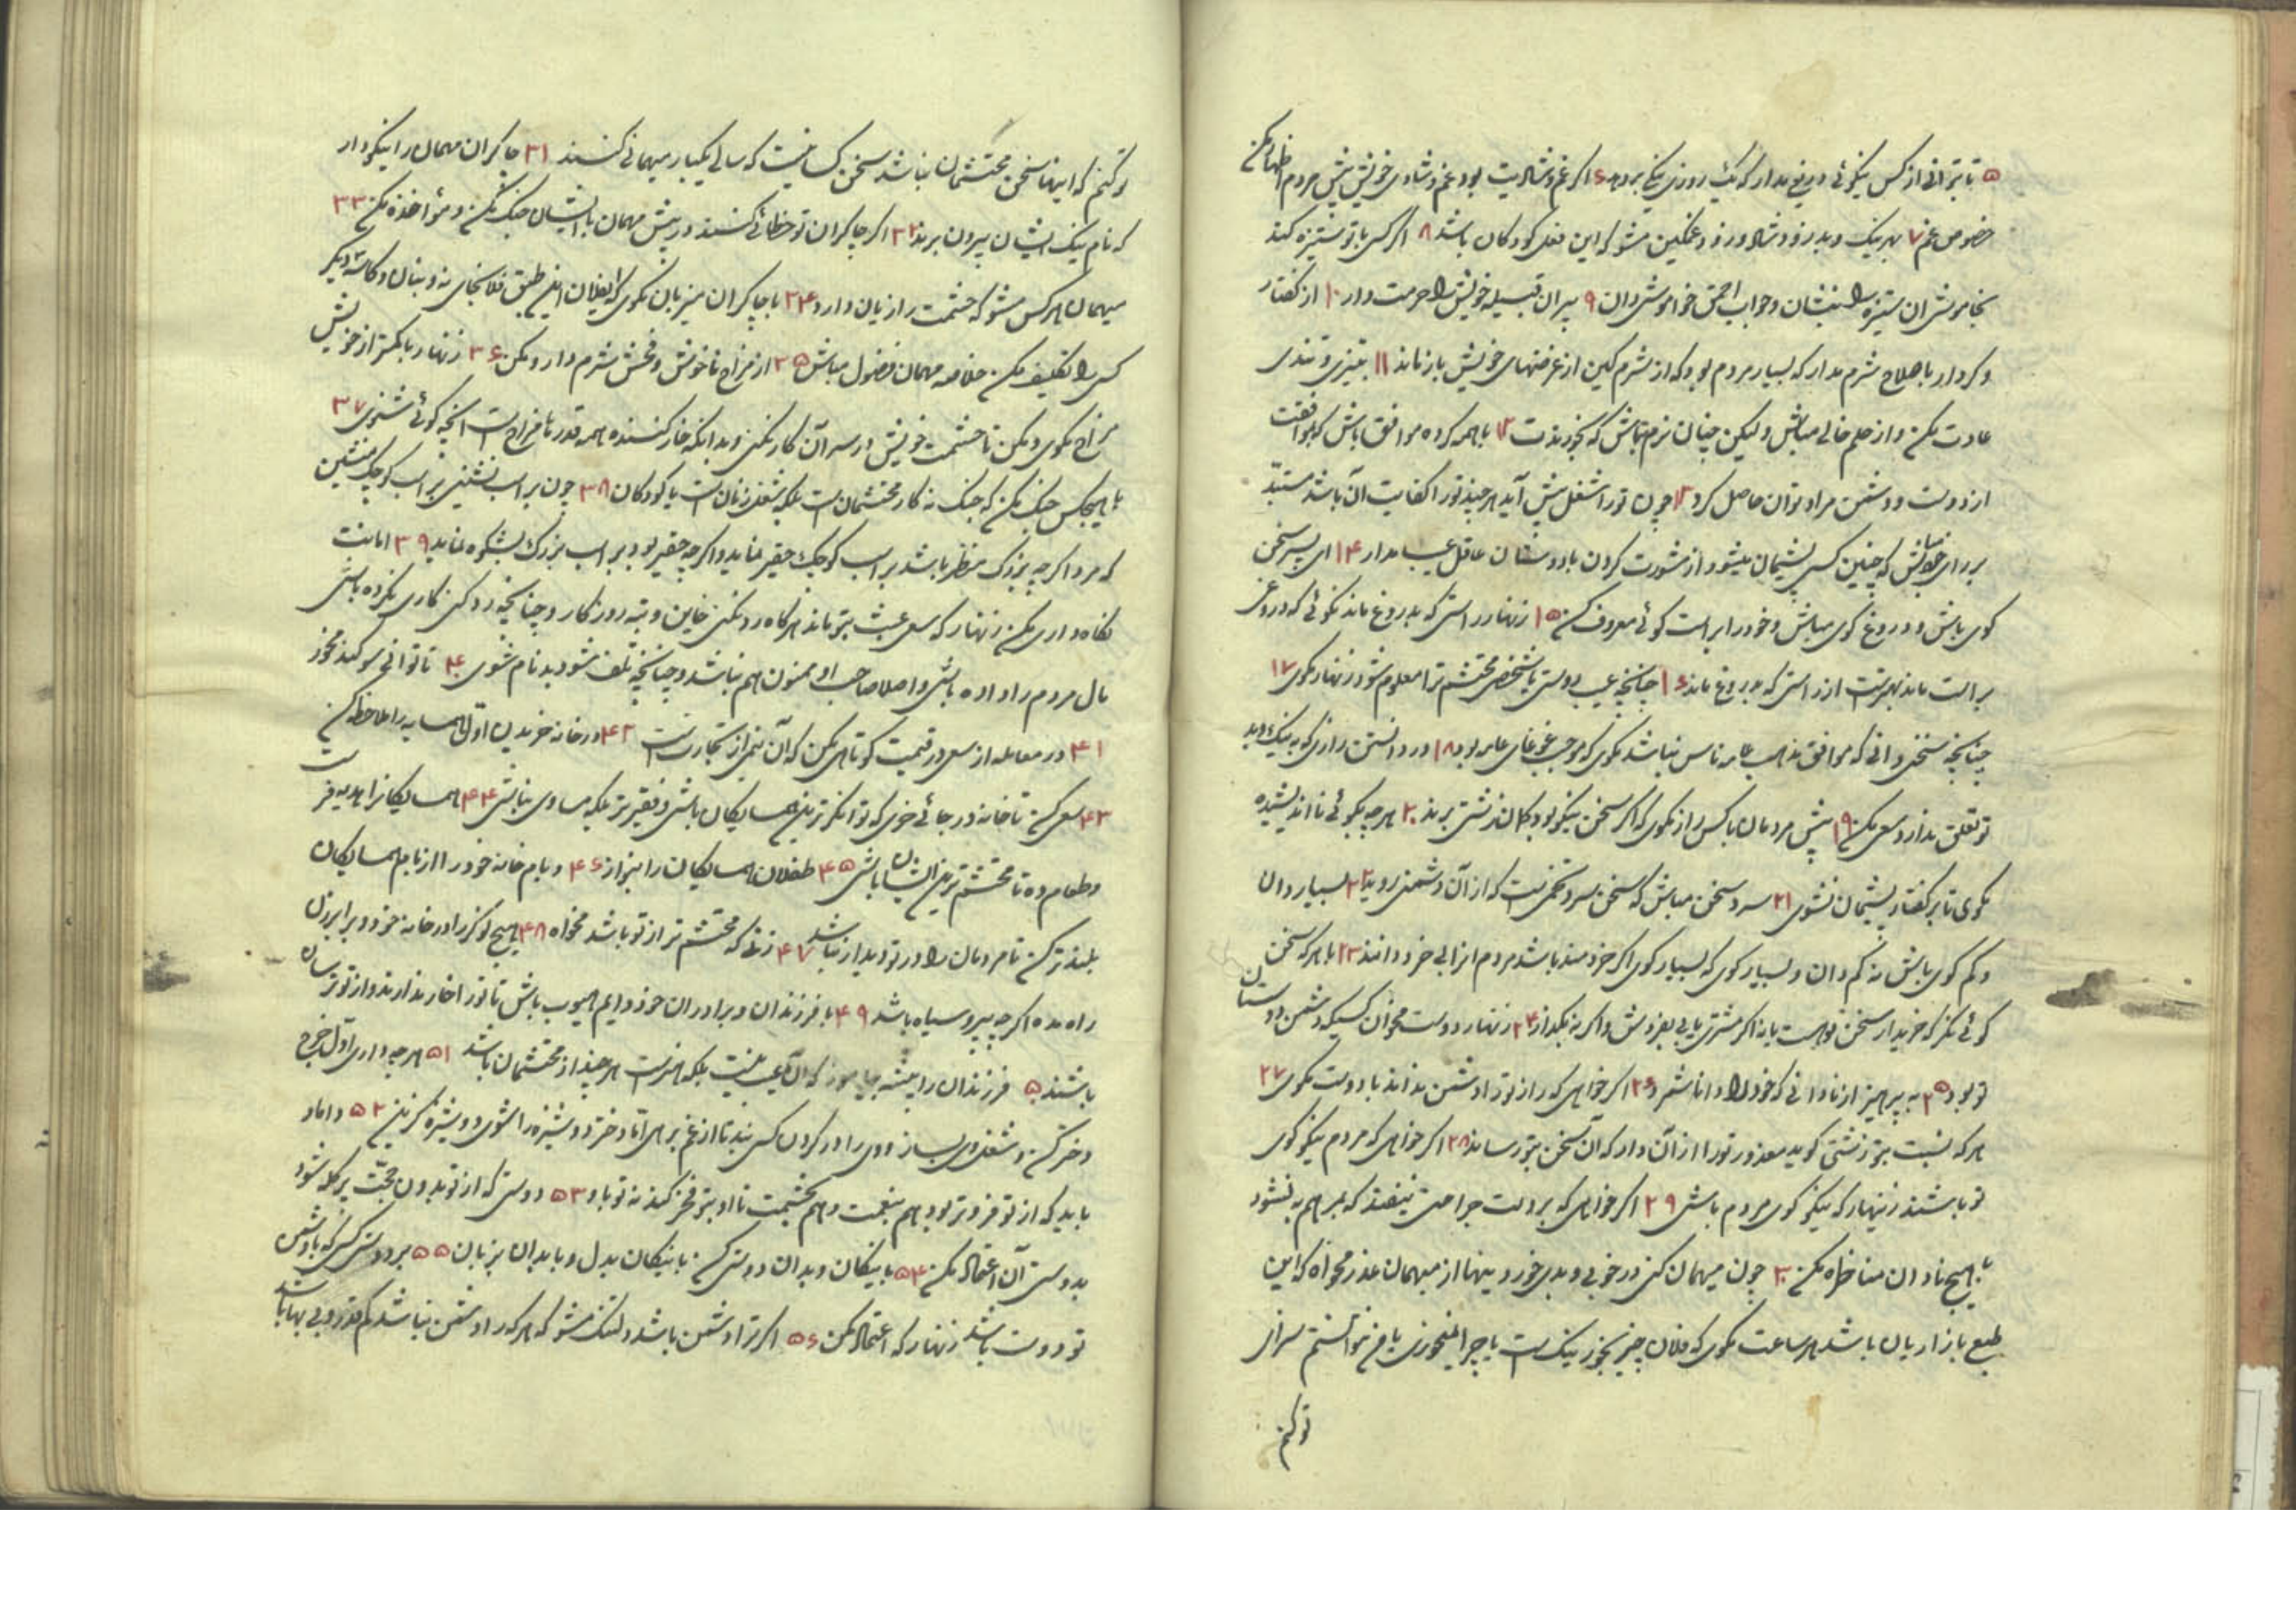 ۵ تا توانی از کس نیکوئی دریغ مدار که نیکی روزی نیکی بر دهد ۶ اگر غم و شادیت بود غم و شادی خویش پیش مردم اظهار مکن
خصوص غم ۷ بهر نیک و بد زود شاد و زود غمگین مشو که این فعل کودکان باشد ۸ اگر کسی با تو ستیزه کند
بخاموشی آن ستیزه را بنشان و جواب احمق خواموشی دان ۹ پیران قبیله خویش را حرمت دار ۱۰ از گفتار
و کردار با صلاح شرم مدار که بسیار مردم بود که از شرمگین از غرضهای خویش باز ماند ۱۱ بتیزی و تندی
عادت مکن و از حلم خالی مباش و لیکن چنان نرم مباش که بخورندت ۱۲ با همه گروه موافق باش که بموافقت
از دوست و دشمن مراد توان حاصل کرد ۱۳ چون تو را شغلی پیش آید هر چند تو را کفایت آن باشد مستبد
برای خویش مباش که چنین کسی پشیمان میشود از مشورت کردن با دوستان عاقل عیب مدار ۱۴ ای پسر سخن
گوی باش و دروغ گوی مباش و خود را براست گوئی معروف کن ۱۵ زنهار راستی که بدروغ ماند نگوئی که دروغی
براست ماند بهتر است از راستی که بدروغ ماند ۱۶ چنانچه عیب دوستی یا شخص محتشم ترا معلوم شود زنهار مگوی ۱۷
چنانچه سخنی دانی که موافق مذهب عامه ناس نباشد مگوی که موجب غوغای عامه بود ۱۸ در دانستن رازی که به نیک و بد
تو تعلق ندارد سعی مکن ۱۹ پیش مردمان با کس راز مگوی که اگر سخن نیکو بود گمان زشتی برند ۲۰ هر چه بگوئی نااندیشیده
مگوی تا بر گفتار پشیمان نشوی ۲۱ سرد سخن مباش که سخن سرد تخمیست که از آن دشمنی روید ۲۲ بسیار دان
و کم گوی باش نه کم دان و بسیار گوی که بسیار گوی اگر خردمند باشد مردم او را بی خرد دانند ۲۳ با هر که سخن
گوئی بنگر که خریدار سخن تو هست یا نه اگر مشتری یابی بفروش و اگر نه بگذار ۲۴ زنهار دوست مخوان کسی که دشمن دوستان
تو بود ۲۵ به پرهیز از نادانی که خود را دانا شمرد ۲۶ اگر خواهی که راز تو را دشمن نداند با دوست مگوی ۲۷
هر که نسبت بتو زشتی گوید معذورتر از آن دار که آن سخن بتو رساند ۲۸ اگر خواهی که مردم نیکو گوی
تو باشند زینهار که نیکو گوی مردم باش ۲۹ اگر خواهی که بر دلت جراحتی نیفتد که بمرهم به نشود
با هیچ نادان مناظره مکن ۳۰ چون میهمان کنی در خوبی و بدی خوردنیها از میهمان عذر مخواه که این
طبع بازاریان باشد هر ساعت مگوی که فلان چیز بخور نیک است یا چرا نمیخوری یا من نتوانستم سزای
تو کنم
تو کنم که اینها سخن محتشمان نباشد سخن کسانیست که سالی یکبار میهمانی کنند ۳۱ چاکران مهمان را نیکو دار
که نام نیک ایشان بیرون برند ۳۲ اگر چاکران تو خطائی کنند در پیش مهمان با ایشان جنگ مکن و مؤاخذه مکن ۳۳
میهمان هر کس مشو که حشمت را زیان دارد ۳۴ با چاکران میزبان مگوی که ای فلان این طبق فلانجای نه و بنان و کاسه دیگر
کسی را تکلیف مکن خلاصه مهمان فضول مباش ۳۵ از مزاح ناخوش و فحش شرم دار و مکن ۳۶ زنهار با کمتر از خویش
مزاح مگوی و مکن تا حشمت خویش در سر آن کار نکنی و بدانکه خار کننده همه قدرها مزاح است آنچه گوئی شنوی ۳۷
با هیچکس جنگ مکن که جنگ نه کار محتشمان است بلکه شغل زنان است یا کودکان ۳۸ چون بر اسب نشینی بر اسب کوچک منشین
که مرد اگر چه بزرگ منظر باشد بر اسب کوچک حقیر نماید و اگر چه حقیر بود بر اسب بزرگ بشکوه نماید ۳۹ امانت
نگاهداری مکن زنهار که سعی عبث بتو ماند هر گاه رد نکنی خاین و تبه روزگار و چنانچه رد کنی کاری نکرده باشی
مال مردم را داده باشی و اصلا صاحب او ممنون هم نباشد و چنانچه تلف شود بدنام شوی ۴۰ تا توانی سوگند مخور
۴۱ در معامله از سعی در قیمت کوتاهی مکن که آن نیمی از تجارتست ۴۲ در خانه خریدن اول همسایه را ملاحظه کن
۴۳ سعی کن تا خانه در جائی خری که توانگرترین همسایگان باشی و فقیرتر بلکه مساوی نباشی ۴۴ همسایگانرا هدیه فرست
و طعام ده تا محتشم ترین ایشان باشی ۴۵ طفلان همسایگان را بنواز ۴۶ و بام خانه خود را از بام همسایگان
بلندتر کن تا مردمان را در تو دیدار نباشد ۴۷ زنی که محتشم تر از تو باشد مخواه ۴۸ هیچ نوکر را در خانه خود و برابر زن
راه مده اگر چه پیر و سیاه باشد ۴۹ با فرزندان و برادران خود دایم مهیب باش تا تو را خار ندارند و از تو ترسان
باشند ۵۰ فرزندان را پیشه بیاموز که آن عیب نیست بلکه هنر است هر چند از محتشمان باشد ۵۱ هر چه داری اول خرج
دختر کن و شغل وی بساز و وی را در گردن کسی بند تا از غم برهی اما دختر دوشیزه را شوی دوشیزه گزین ۵۲ داماد
باید که از تو فروتر بود هم بنعمت و هم بحشمت تا او بتو فخر کند نه تو باو ۵۳ دوستی که از تو بدون حجت پر گله شود
بدوستی آن اعتماد مکن ۵۴ با نیکان و بدان دوستی کن با نیکان بدل و با بدان بزبان ۵۵ بر دوستی کسی که با دشمن
تو دوست باشد زنهار که اعتماد مکن ۵۶ اگر ترا دشمن باشد دلتنگ مشو که هر که را دشمن نباشد کم قدر و بی بها باشد